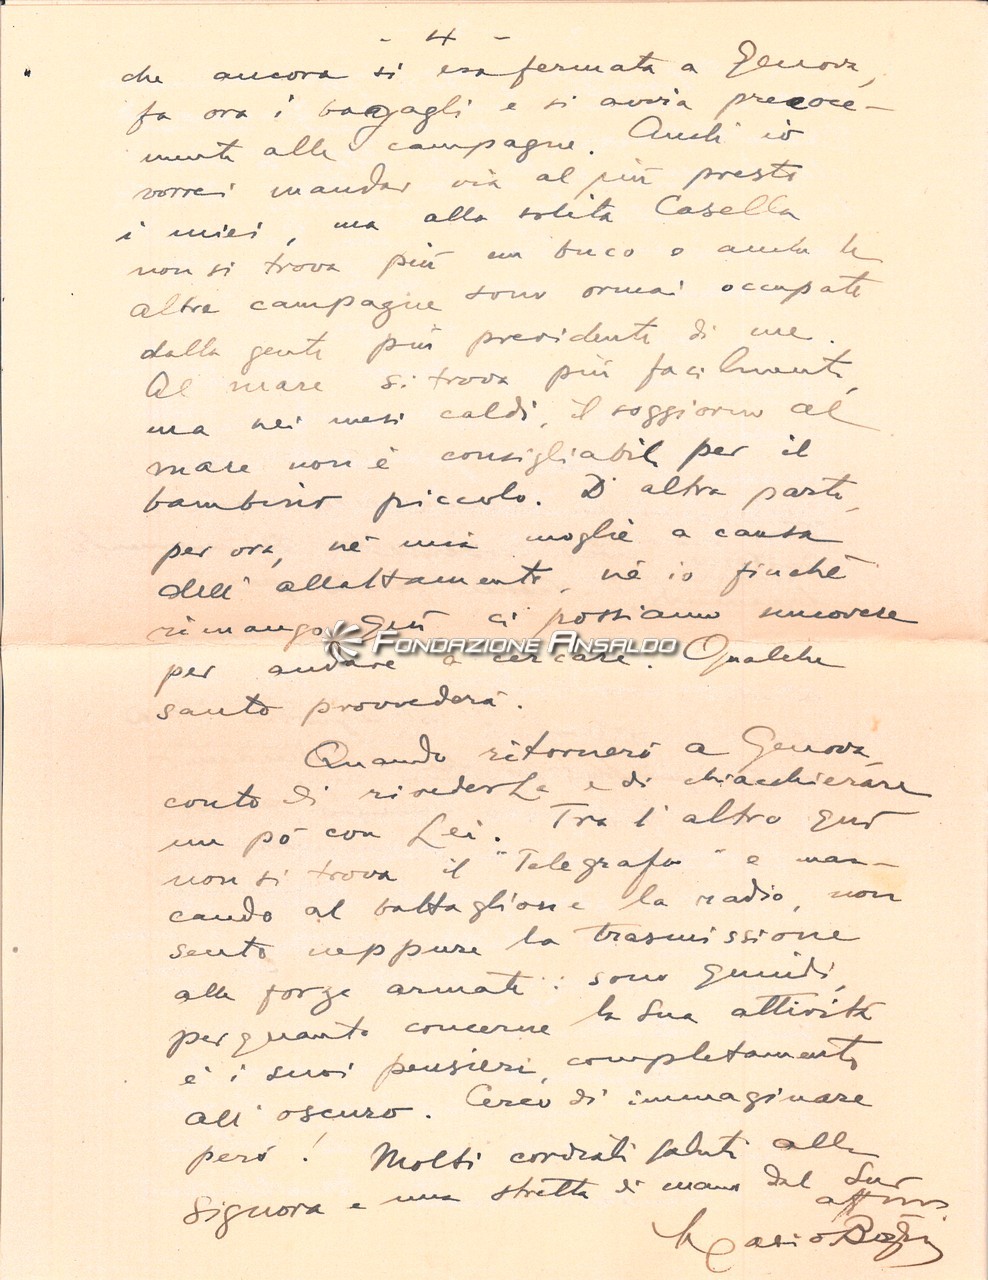 - 4 -
che ancora si era fermata a Genova,
fa ora i bagagli e si avvia precoce-
mente alle campagne. Anch'io
vorrei mandar via al più presto
i miei, ma alla solita Casella
non si trova più un buco e anche le
altre campagne sono ormai occupate
dalla gente più previdente di me.
Al mare si trova più facilmente,
ma nei mesi caldi, il soggiorno al
mare non è consigliabile per il
bambino piccolo. D'altra parte,
per ora, nè mia moglie a causa
dell'allattamento, nè io finchè
rimango qui ci possiamo muovere
per andare a cercare. Qualche
santo provvederà.
Quando ritornerò a Genova,
conto di rivederLa e di chiacchierare
un pò con Lei. Tra l'altro qui
non si trova il "Telegrafo" e man-
cando al battaglione la radio, non
sento neppure la trasmissione
alle forze armate: sono quindi,
per quanto concerne la Sua attività
e i suoi pensieri, completamente
all'oscuro. Cerco di immaginare
però! Molti cordiali saluti alla
Signora e una stretta di mano dal Suo
aff.mo
Mario
FONDAZIONE ANSALDO